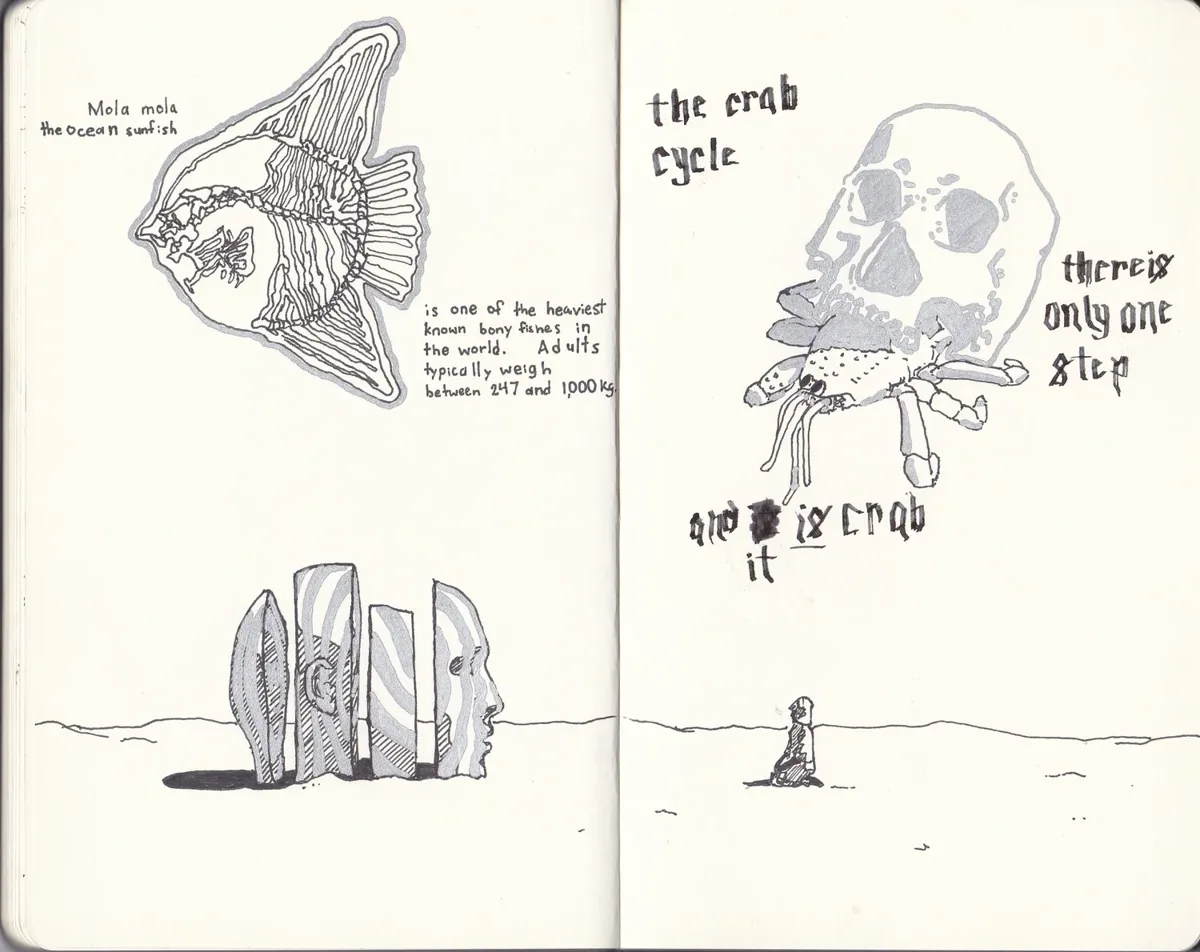 Mola mola
the ocean sunfish
is one of the heaviest
known bony fishes in
the world. Adults
typically weigh
between 247 and 1,000 kg.
the crab
cycle
there is
only one
step
and is crab
it